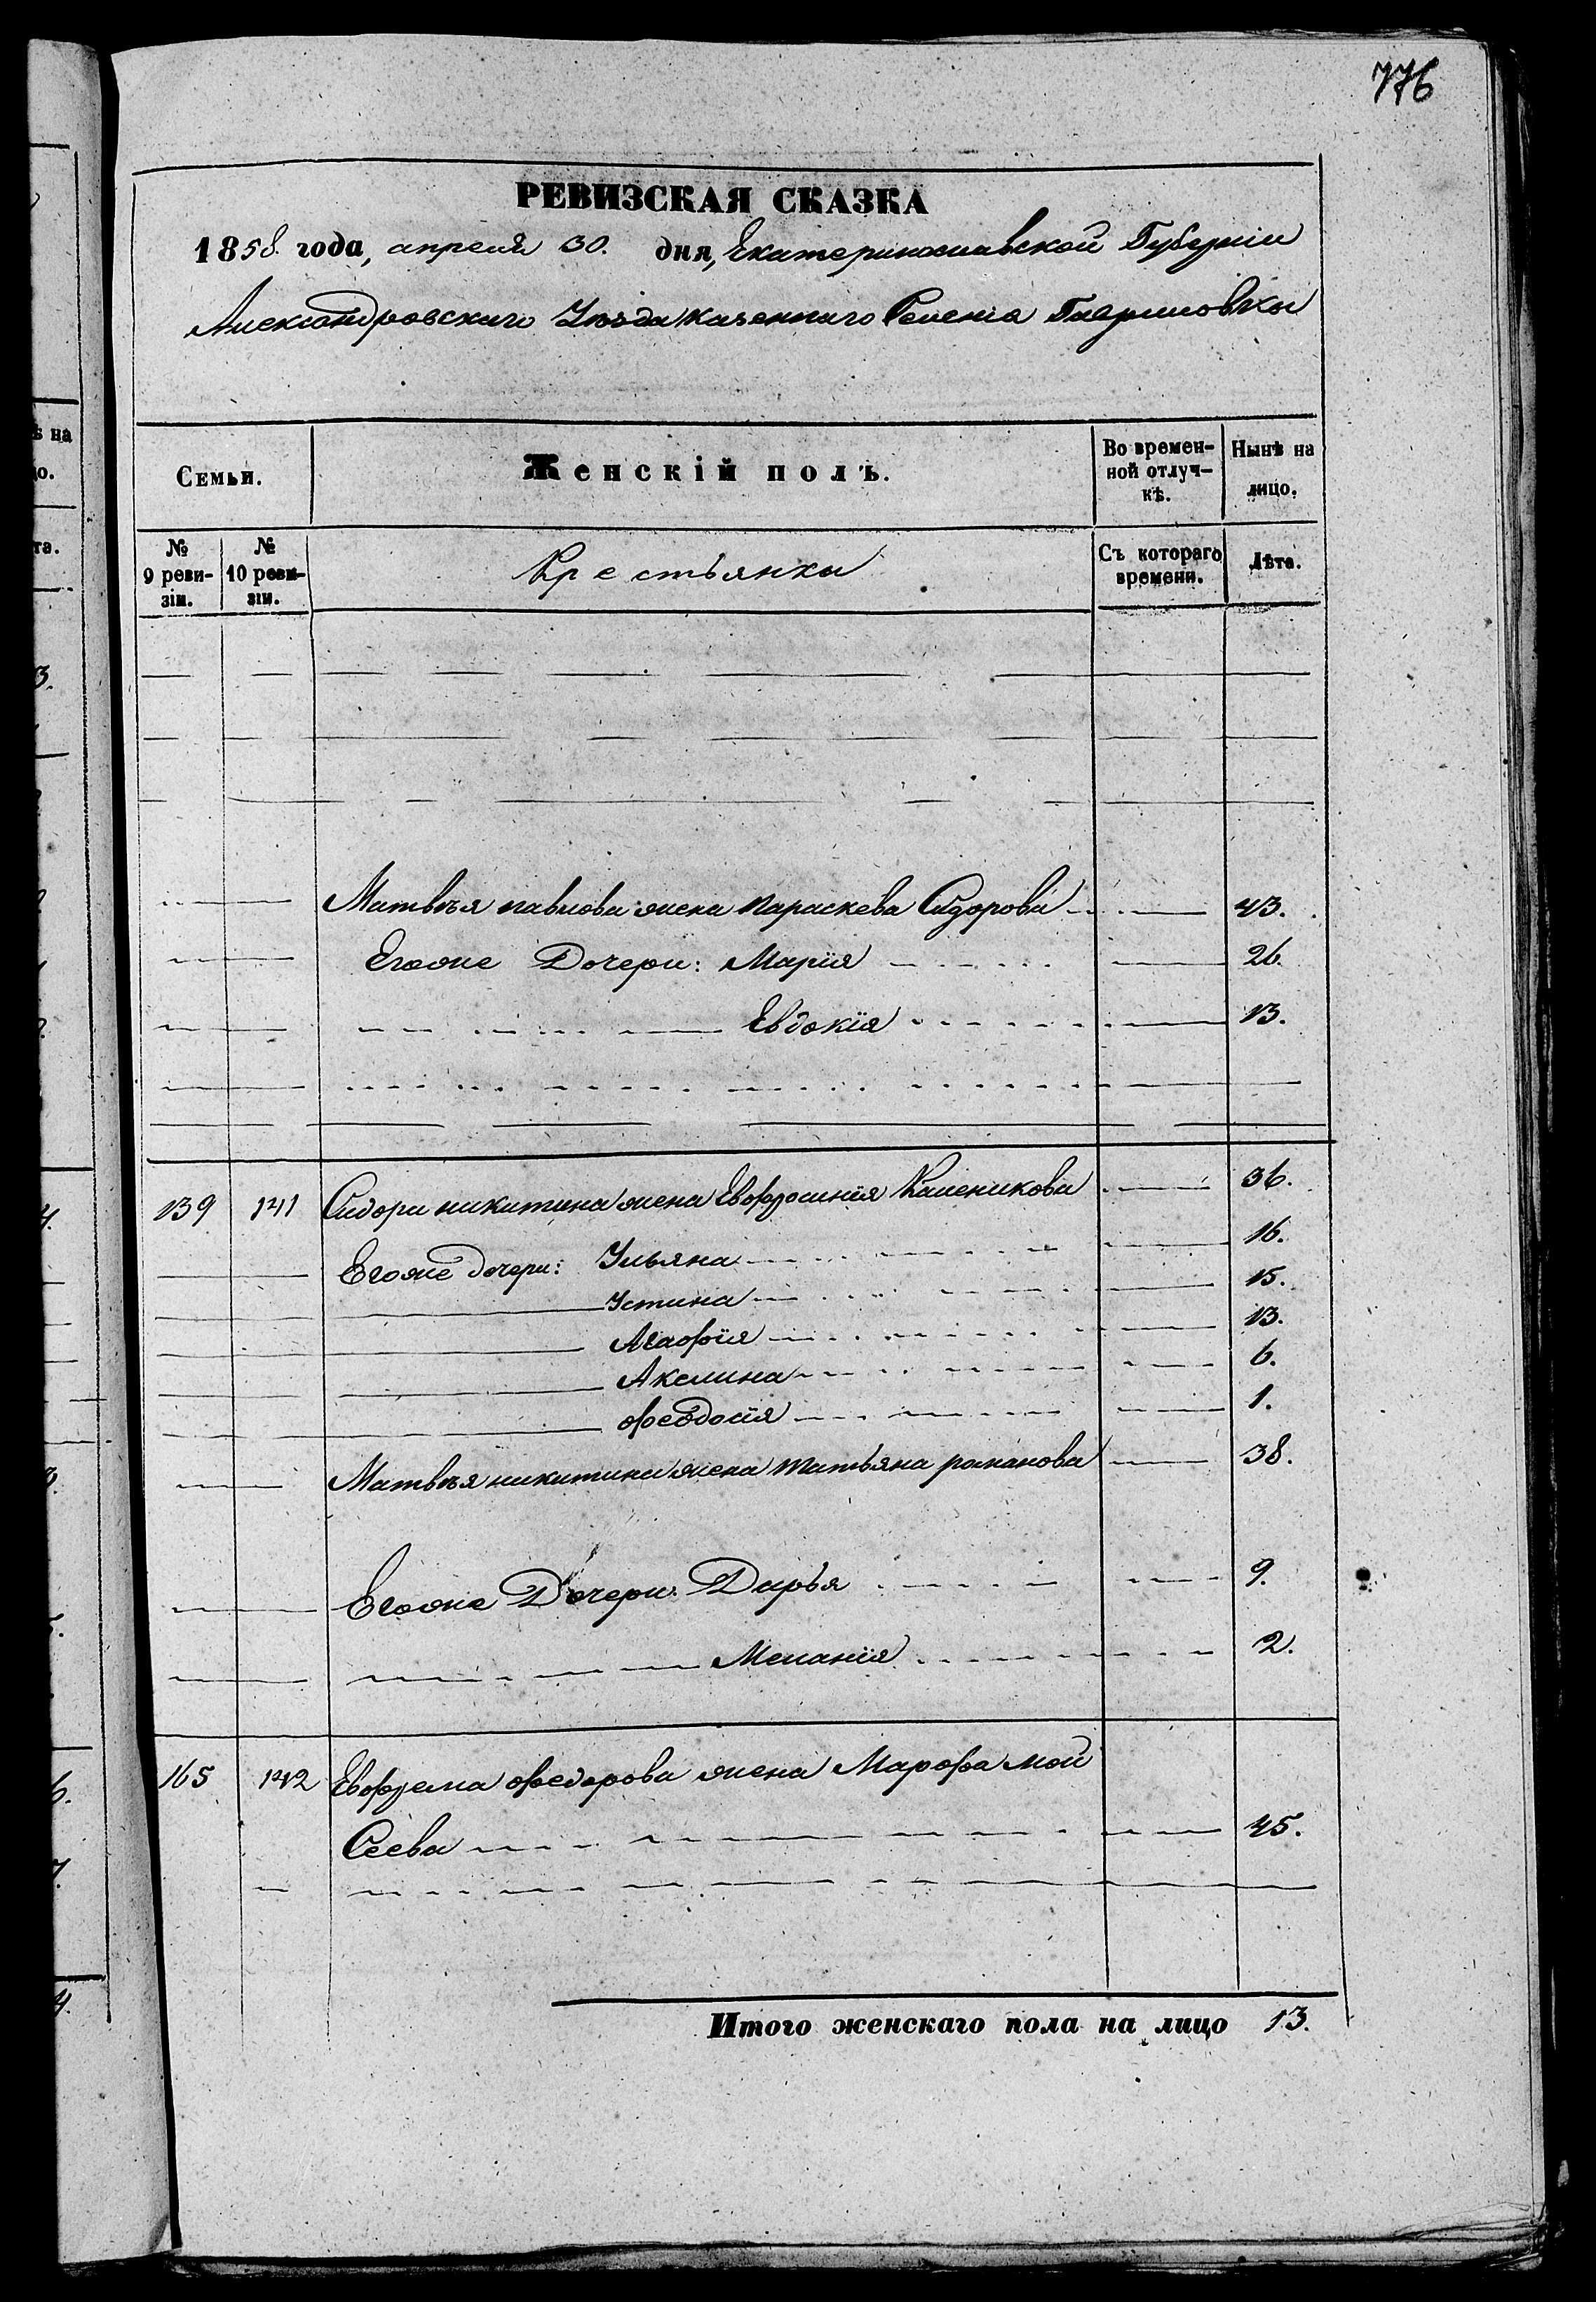 776
РЕВИЗСКАЯ СКАЗКА
1858 года, апреля 30. дня, Екатеринославской Губерніи
Александровскаго Уѣзда казеннаго Селенія Гавриловки
Семьи.
Женскій полъ.
Во времен-
ной отлуч-
кѣ.
Нынѣ на
лицо.
№
9 реви-
зіи.
№
10 реви-
зіи.
Крестьянки
Съ котораго
времени.
Лѣта.
Матвѣя павлова жена Параскева Сидорова 43.
Егоже Дочери: Марія 26.
Евдокія 13.
139 141 Сидора никитина жена Евфросинія Каленикова 36.
Егоже дочери: Ульяна 16.
Устина 15.
Агафія 13.
Акелина 6.
феодосія 1.
Матвѣя никитина жена татьяна романова 38.
Егоже Дочери: Дарья 9.
Меланія 2.
165 142 Евфрема федорова жена Марфа Мой
Сеева 45.
Итого женскаго пола на лицо 13.